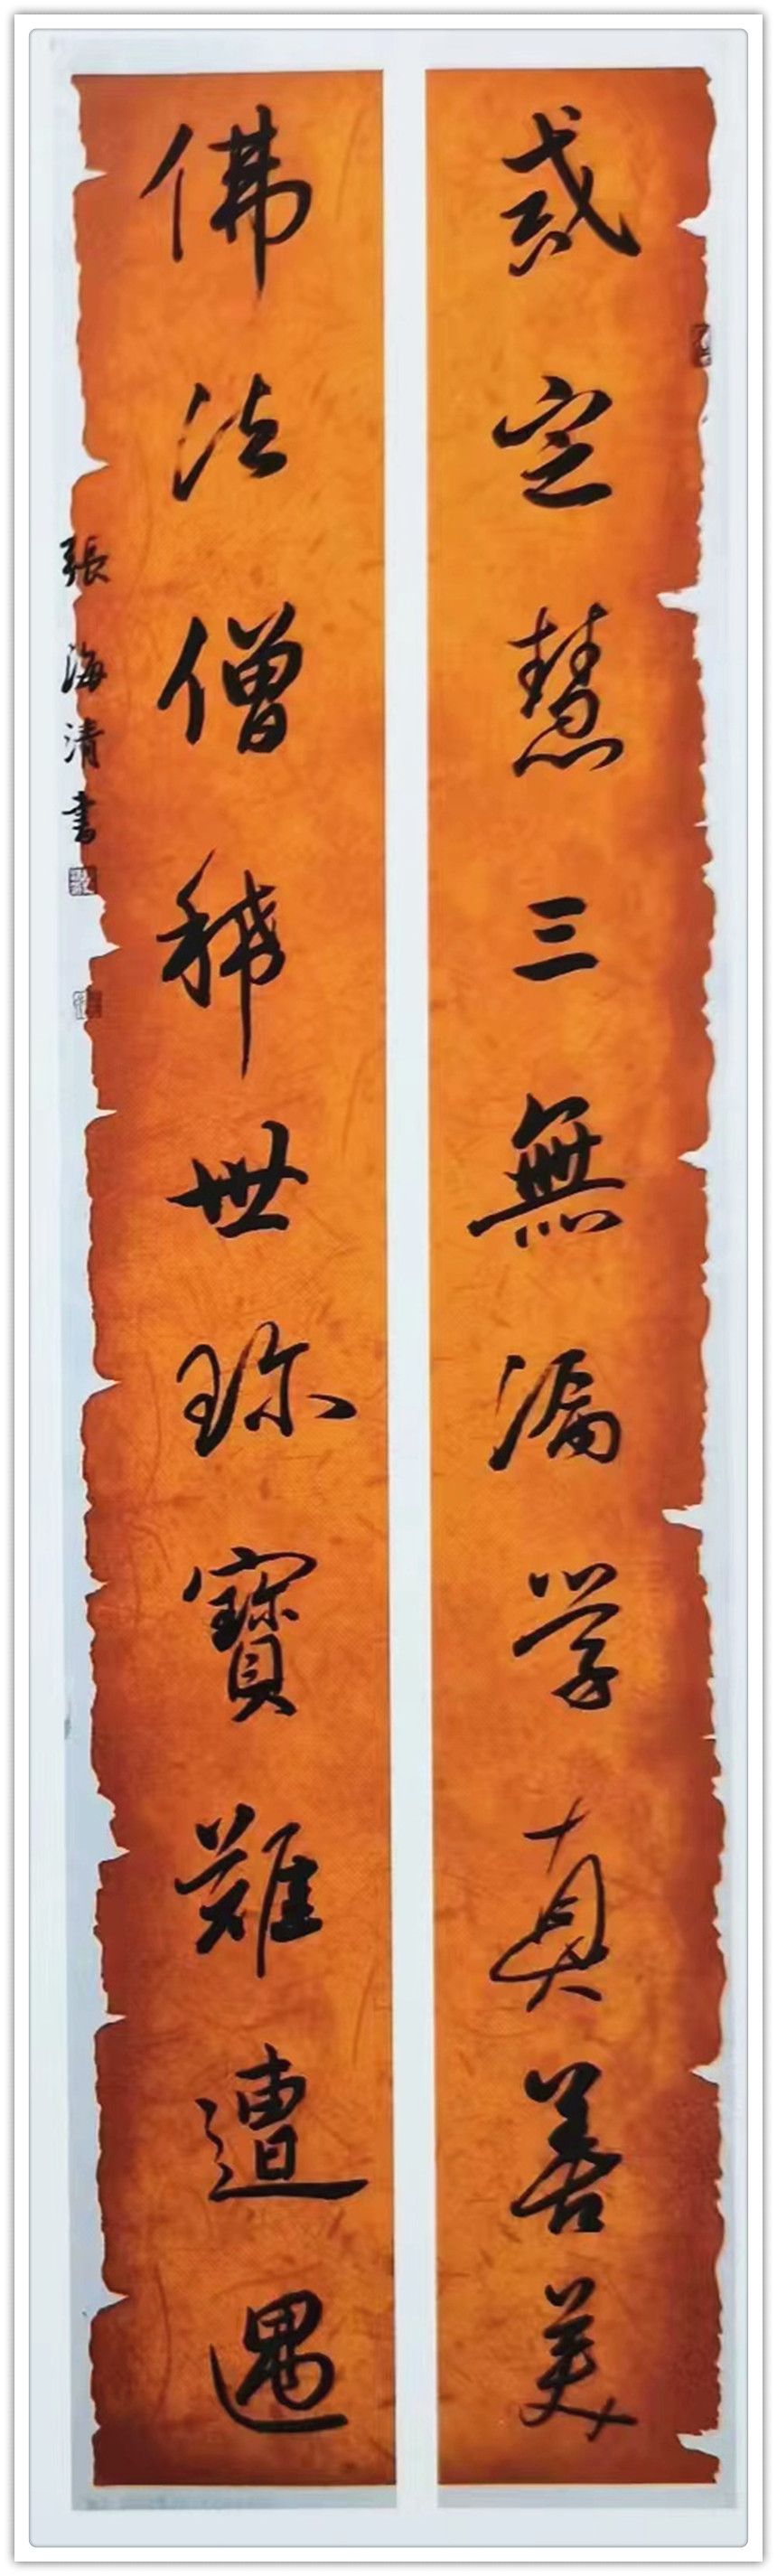 戒定慧三無漏学真善美
佛法僧稀世珎寶難遭遇
張海清書